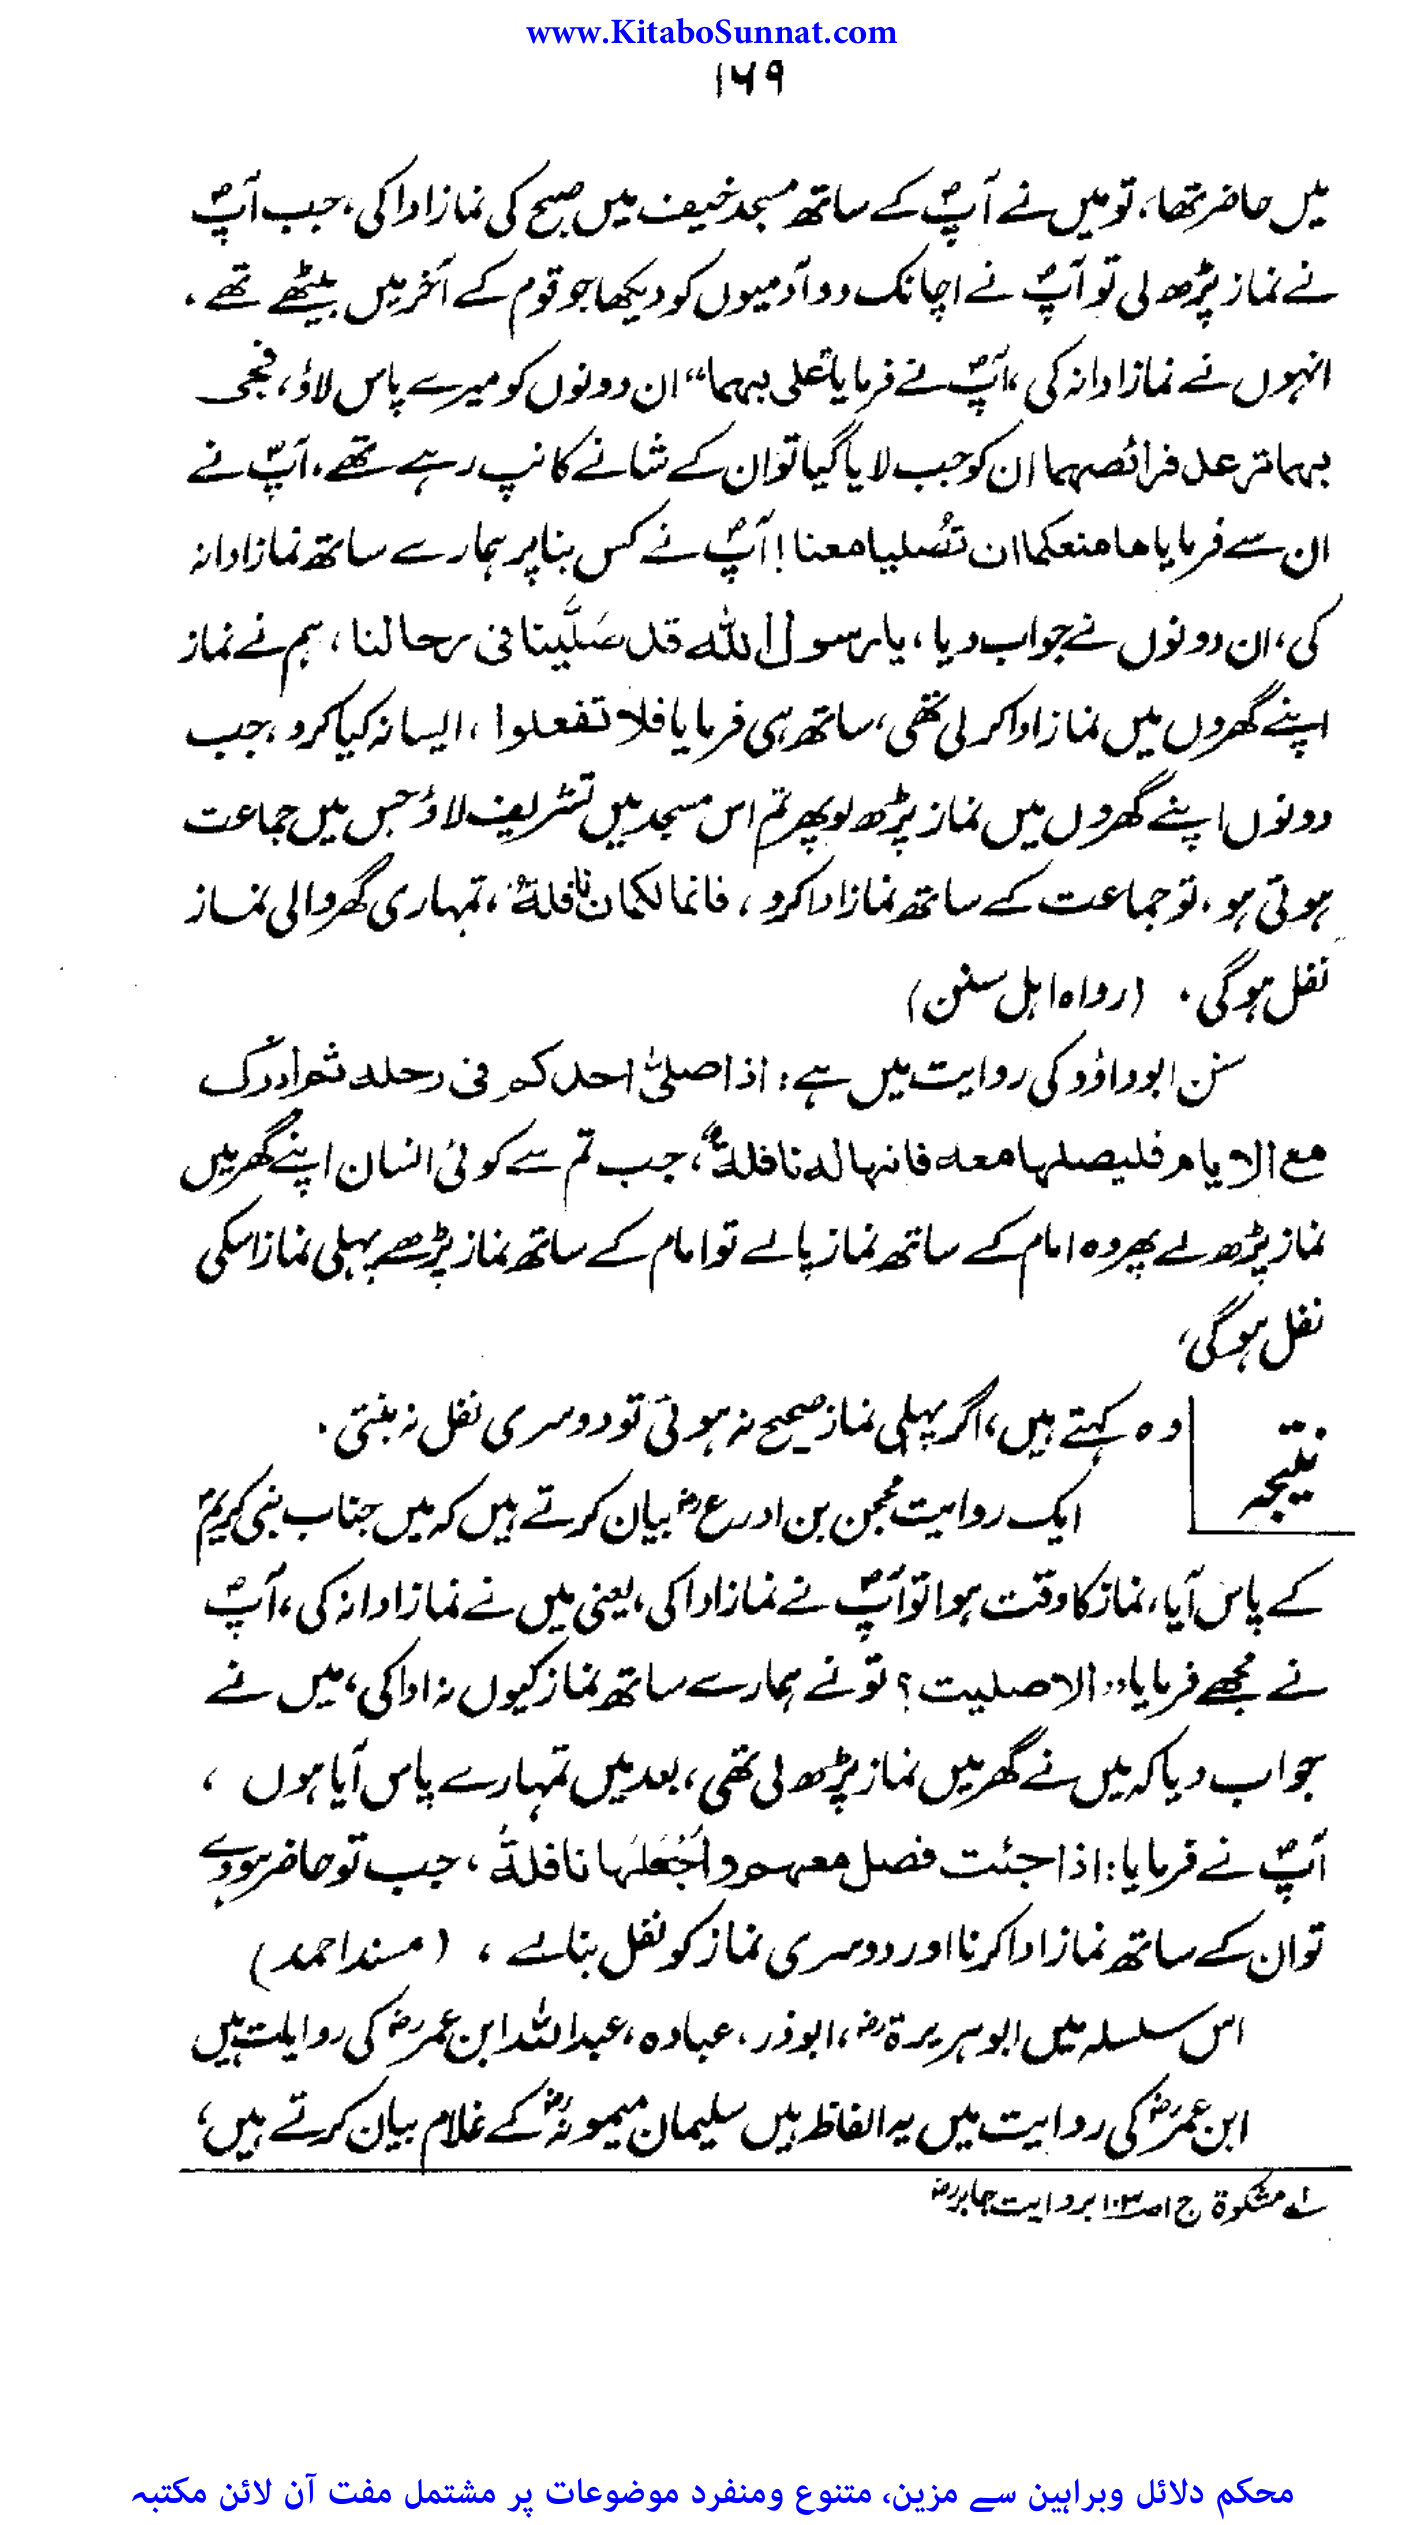 www.KitaboSunnat.com
۱۶۹
میں حاضر تھا، تو میں نے آپؐ کے ساتھ مسجد خیف میں صبح کی نماز ادا کی، جب آپؐ
نے نماز پڑھ لی تو آپؐ نے اچانک دو آدمیوں کو دیکھا جو قوم کے آخر میں بیٹھے تھے۔
انہوں نے نماز ادا نہ کی، آپؐ نے فرمایا ”علی بہما“ ان دونوں کو میرے پاس لاؤ، فجی
بہما ترعد فرائصہما ان کو جب لایا گیا تو ان کے شانے کانپ رہے تھے۔ آپؐ نے
ان سے فرمایا ما منعکما ان تُصلیا معنا! آپؐ نے کس بنا پر ہمارے ساتھ نماز ادا نہ
کی، ان دونوں نے جواب دیا، یا رسول اللہ قد صَلَّینا فی رحالنا، ہم نے نماز
اپنے گھروں میں نماز ادا کر لی تھی، ساتھ ہی فرمایا فلا تفعلوا، ایسا نہ کیا کرو، جب
دونوں اپنے گھروں میں نماز پڑھ لو پھر تم اس مسجد میں تشریف لاؤ جس میں جماعت
ہوتی ہو، تو جماعت کے ساتھ نماز ادا کرو، فانما لکمان نافلةٌ، تمہاری گھر والی نماز
نفل ہو گی۔ (رواہ اہل سنن)
سنن ابوداؤد کی روایت میں ہے: اذا صلیٰ احدکم فی رحله ثم ادرک
مع الامام فلیصلها معه فانها له نافلةٌ، جب تم سے کوئی انسان اپنے گھر میں
نماز پڑھ لے پھر وہ امام کے ساتھ نماز پالے تو امام کے ساتھ نماز پڑھے پہلی نماز اسکی
نفل ہو گی،
نتیجہ
وہ کہتے ہیں، اگر پہلی نماز صحیح نہ ہوتی تو دوسری نفل نہ بنتی۔
ایک روایت محجن بن ادرعؓ بیان کرتے ہیں کہ میں جناب نبی کریمؐ
کے پاس آیا، نماز کا وقت ہوا تو آپؐ نے نماز ادا کی، یعنی میں نے نماز ادا نہ کی، آپؐ
نے مجھے فرمایا ”الا صلیت؟ تو نے ہمارے ساتھ نماز کیوں نہ ادا کی، میں نے
جواب دیا کہ میں نے گھر میں نماز پڑھ لی تھی، بعد میں تمہارے پاس آیا ہوں،
آپؐ نے فرمایا: اذا جئت فصل معهم واجْعَلَها نافلةً، جب تو حاضر ہووے
تو ان کے ساتھ نماز ادا کرنا اور دوسری نماز کو نفل بنالے، (مسند احمد)
اس سلسلہ میں ابو ہریرةؓ، ابوذر، عبادہ، عبداللہ ابن عمرؓ کی روایات ہیں
ابن عمرؓ کی روایت میں یہ الفاظ ہیں سلیمان میمونہؓ کے غلام بیان کرتے ہیں،
لے مشکوة ج۱ ص۱۰۳ بروایت جابرؓ
محکم دلائل وبراہین سے مزین، متنوع ومنفرد موضوعات پر مشتمل مفت آن لائن مکتبہ